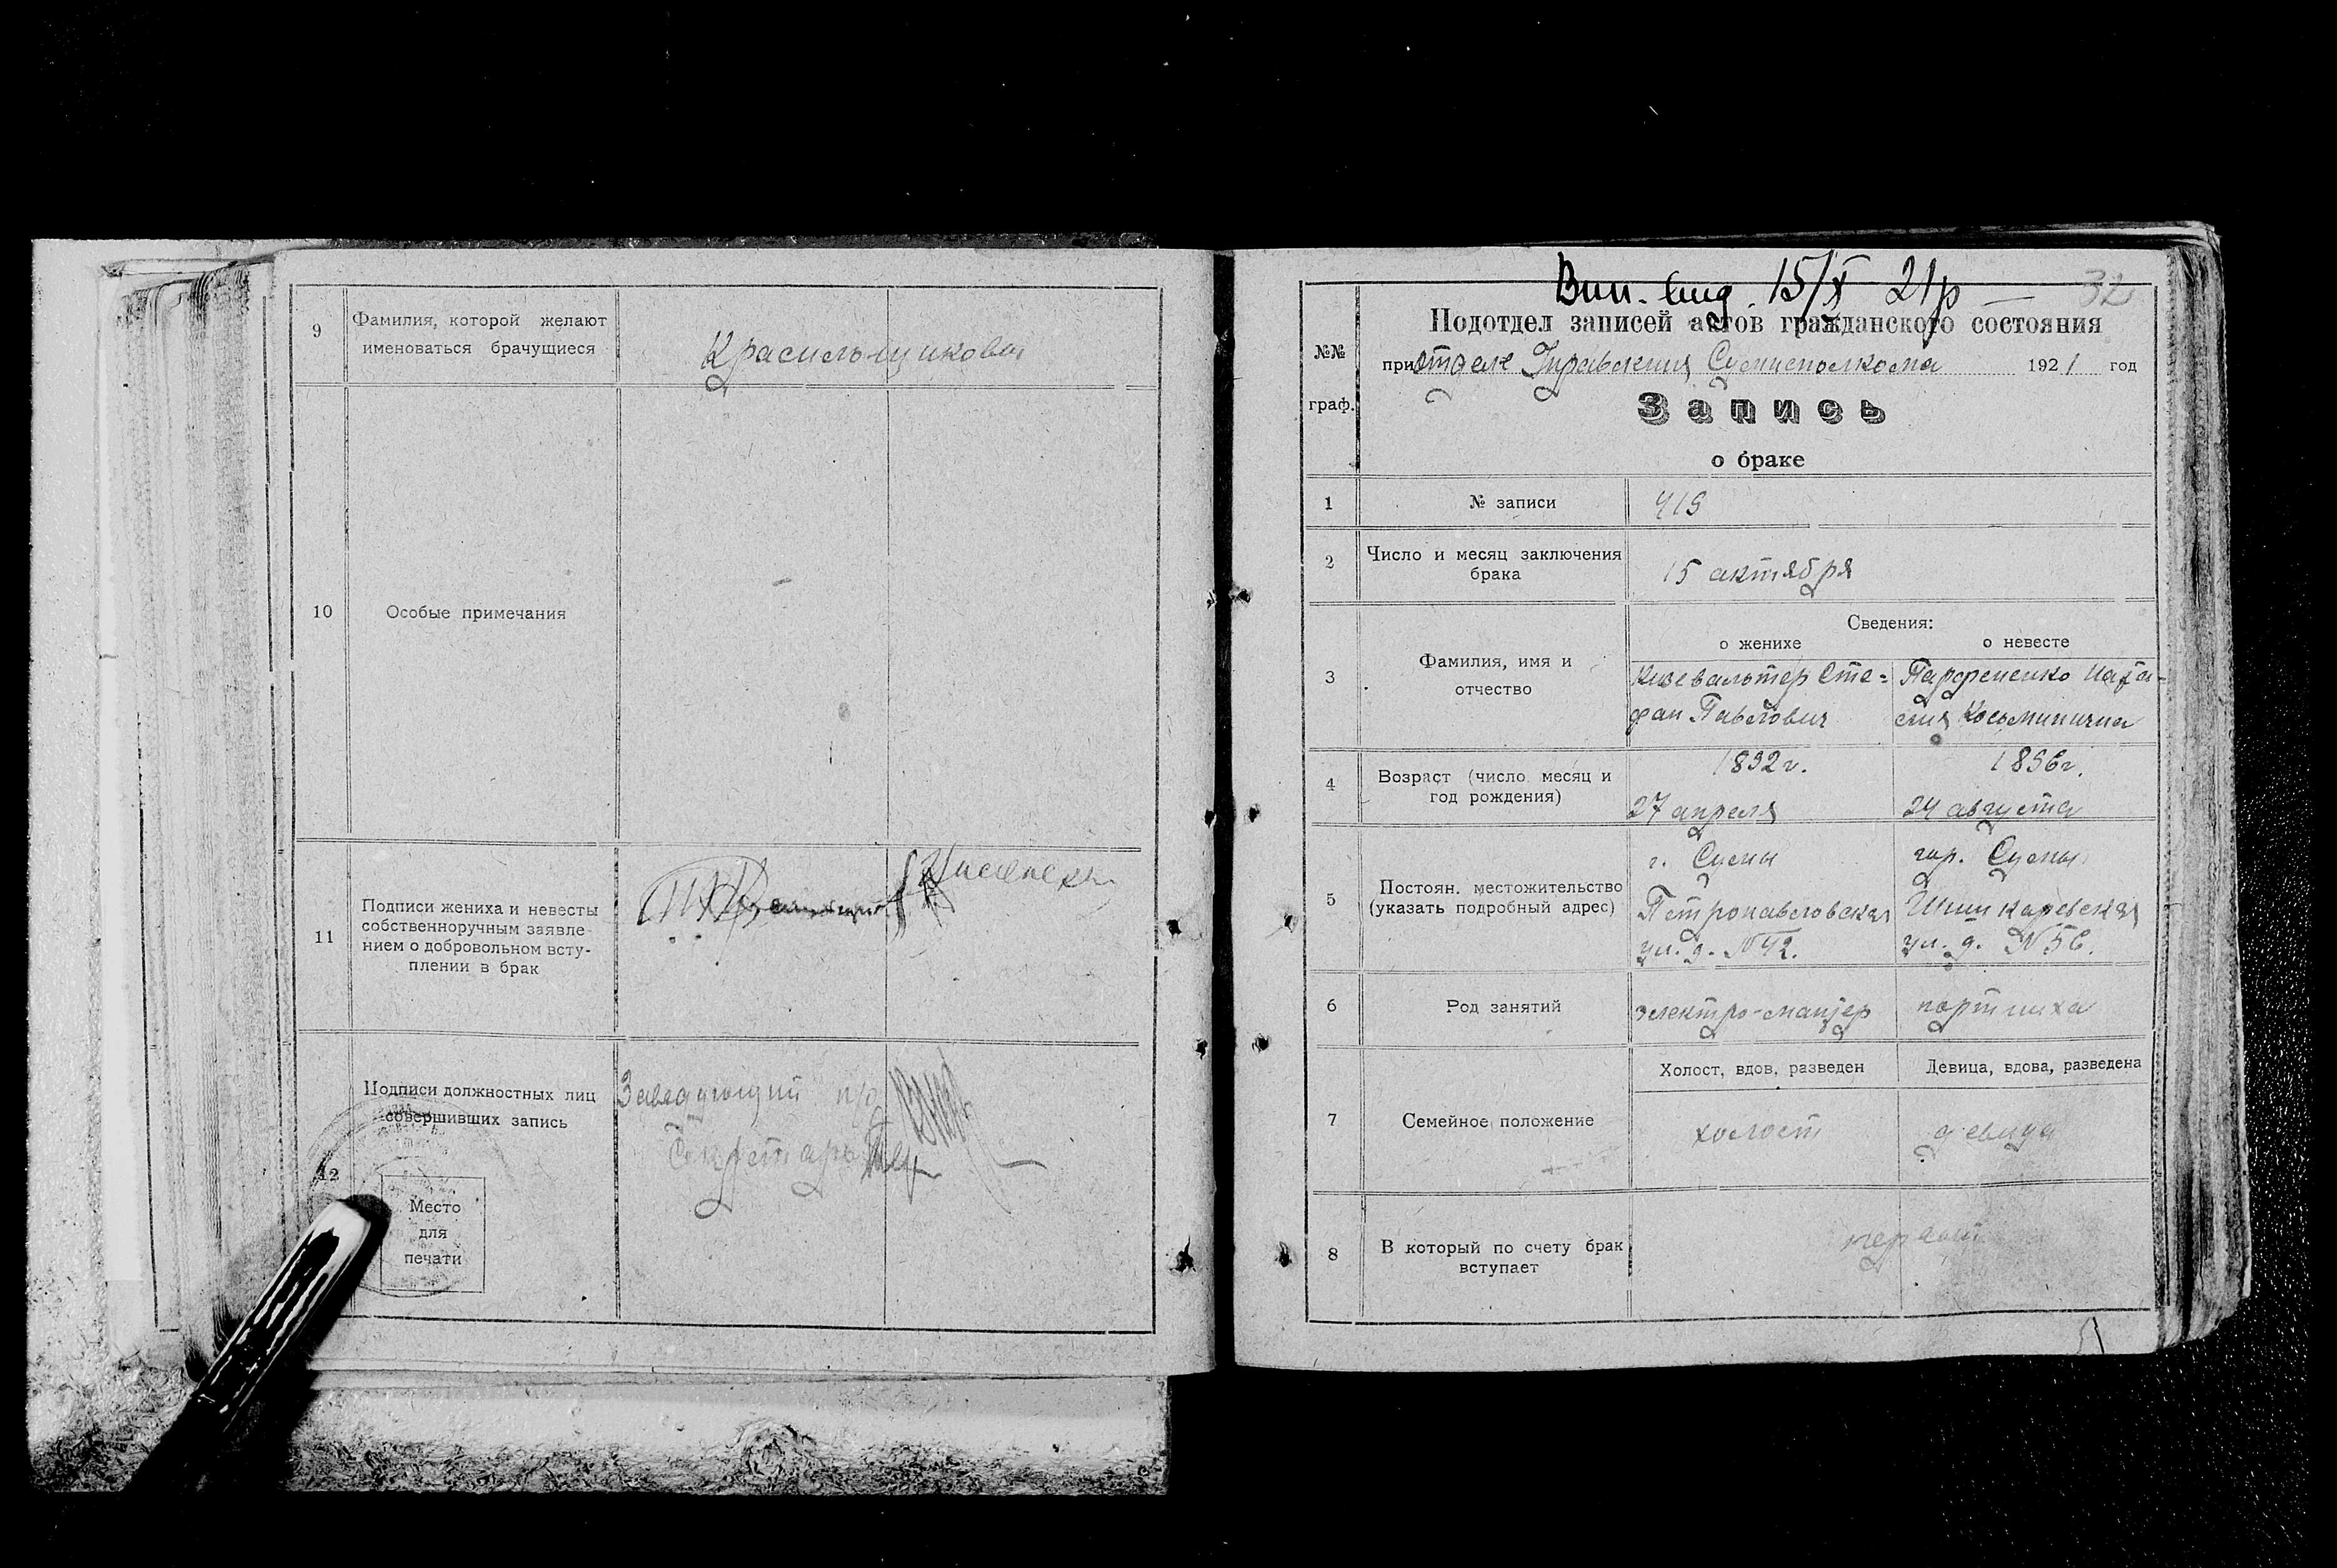 9
Фамилия, которой желают
именоваться брачущиеся
Красильщиковы
10
Особые примечания
11
Подписи жениха и невесты
собственноручным заявле-
нием о добровольном всту-
плении в брак
12
Подписи должностных лиц
совершивших запись
Заведующий п/о
Секретарь
Место
для
печати
Вип. вид. 15/X 21р —
32
Подотдел записей актов гражданского состояния
при отделе Управления Сумисполкома 1921 год
№№
граф.
Запись
о браке
1
№ записи
419
2
Число и месяц заключения
брака
15 актября
3
Фамилия, имя и
отчество
Сведения:
о женихе
о невесте
Кизевальтер Сте=
фан Павлович
Парфененко Ната-
лия Косьминична
4
Возраст (число месяц и
год рождения)
1892 г.
27 апреля
1896 г.
24 августа
5
Постоян. местожительство
(указать подробный адрес)
г. Сумы
Петропавловская
ул. д. № 42.
гор. Сумы
Шишкаревская
ул. д. № 56.
6
Род занятий
электро-мантер
портниха
7
Семейное положение
Холост, вдов, разведен
Девица, вдова, разведена
холост
девица
8
В который по счету брак
вступает
первый